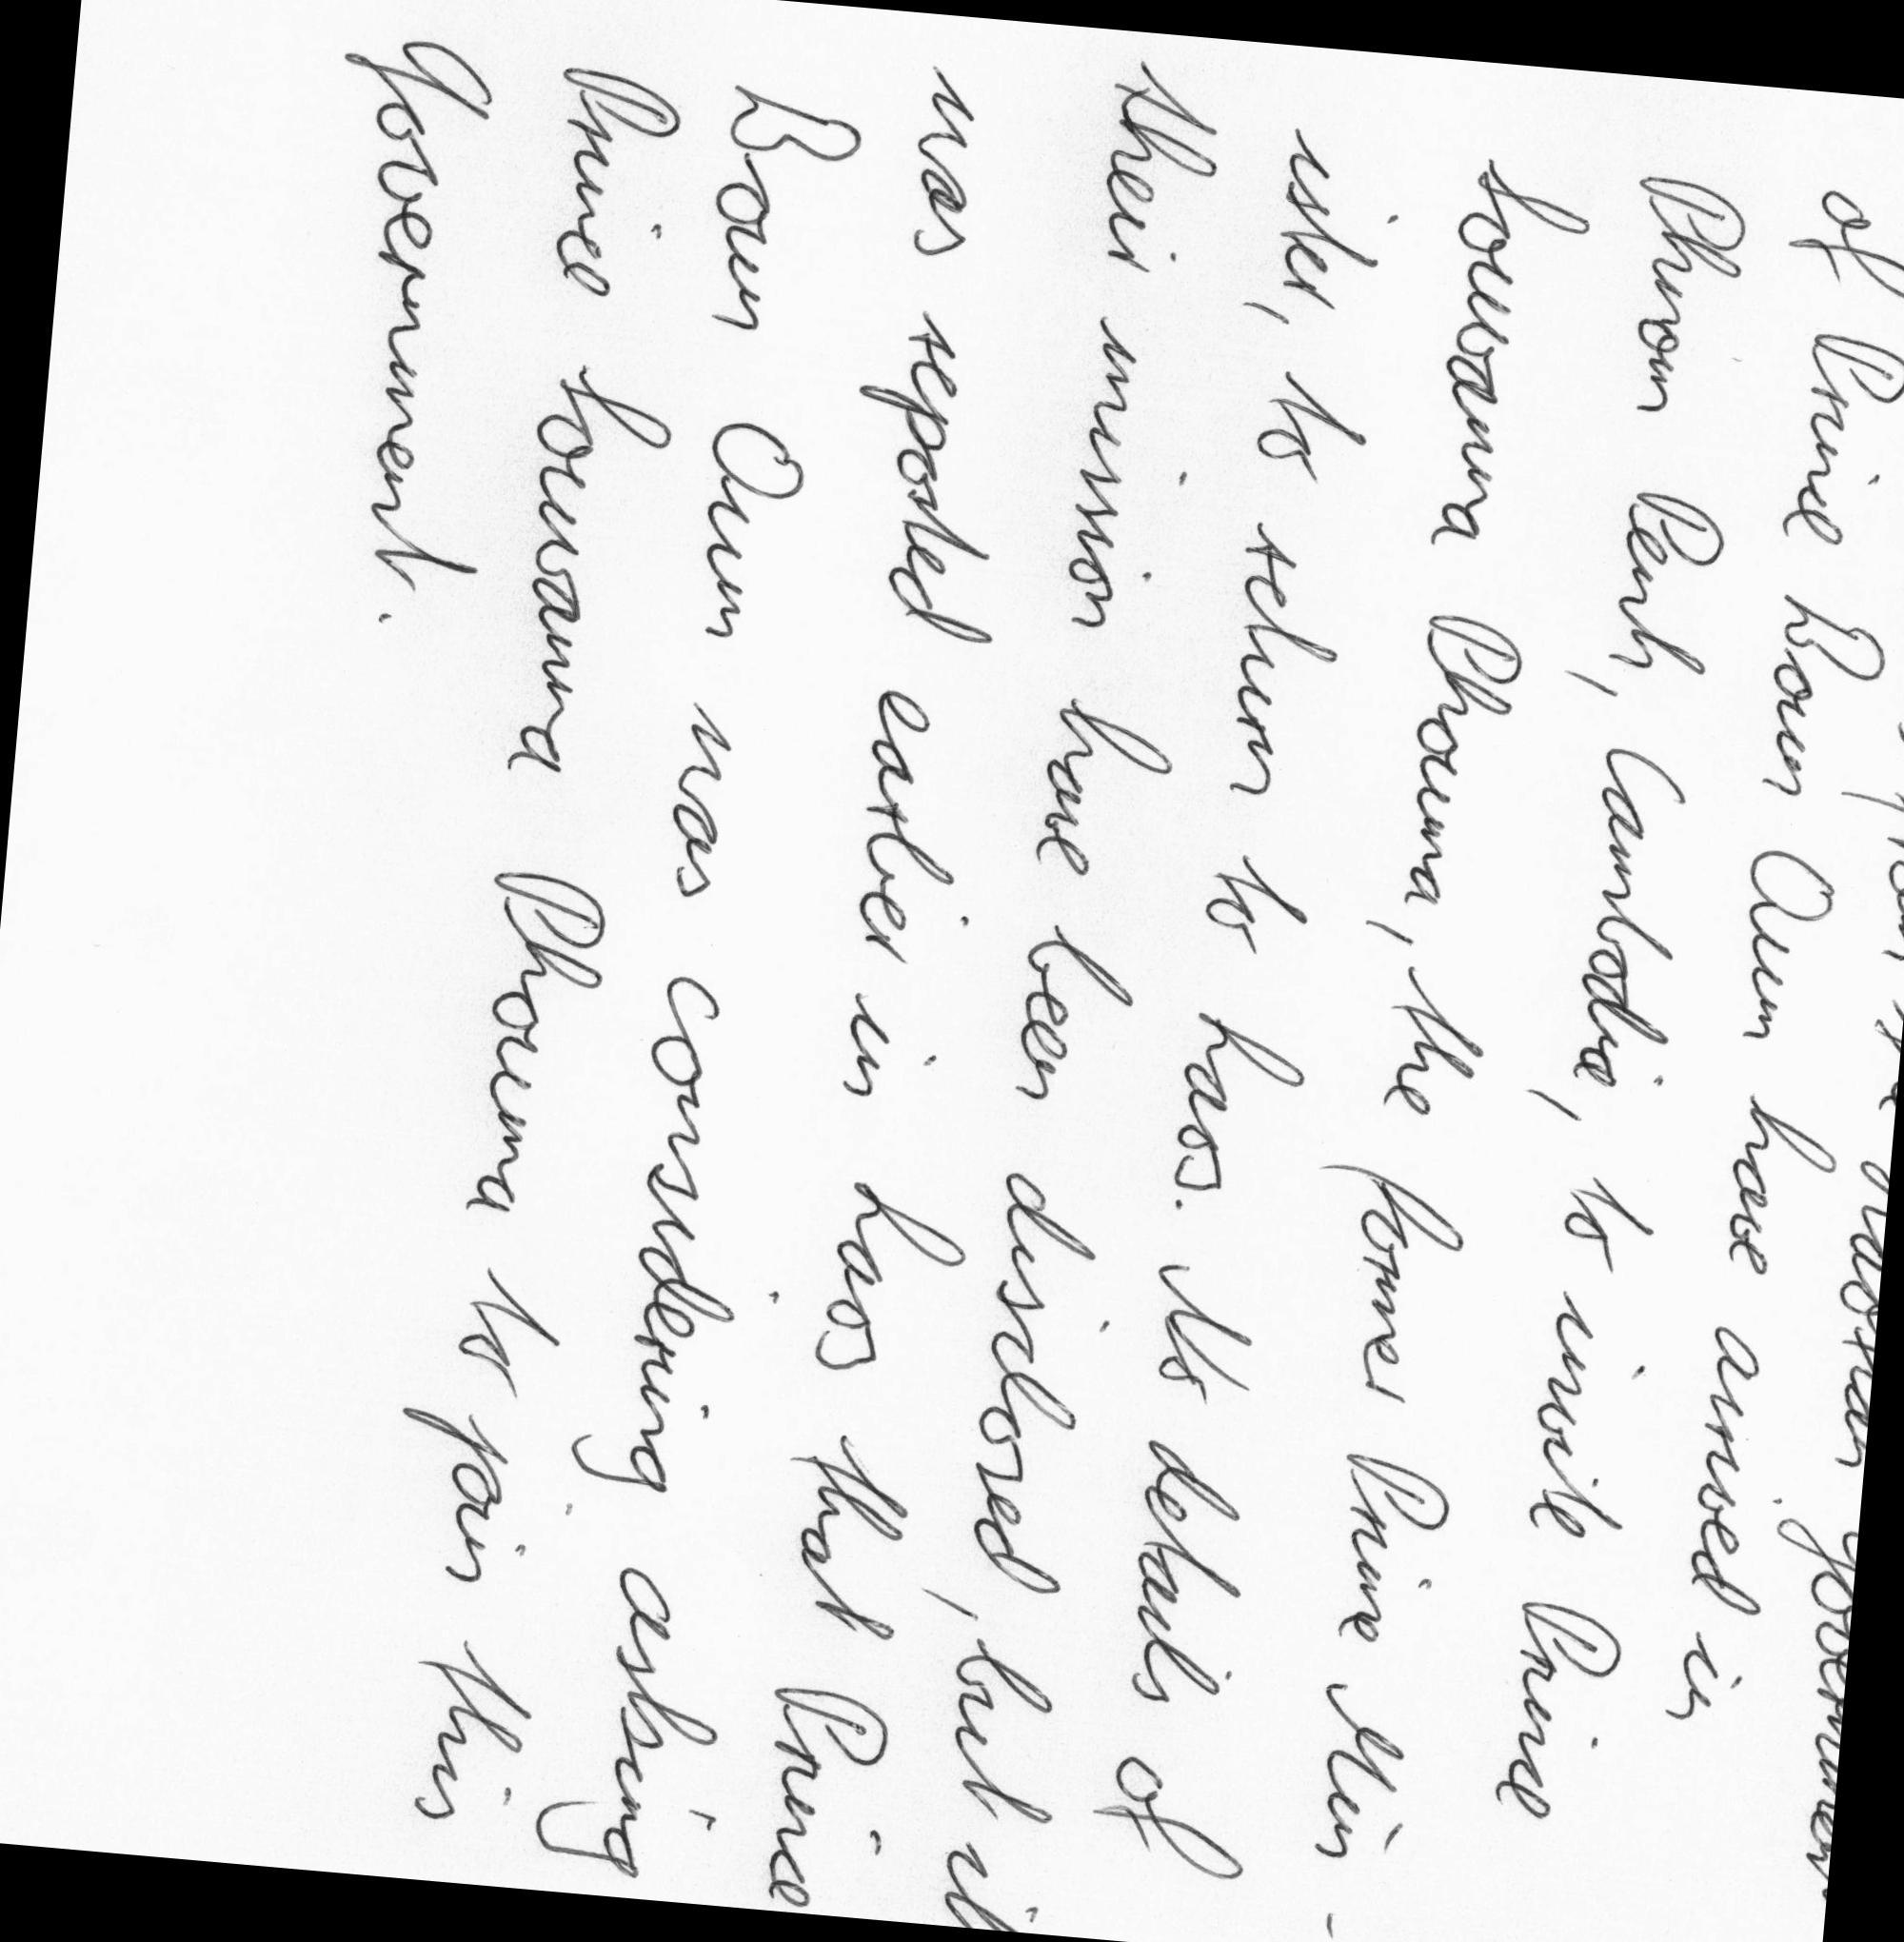 the Laotian government
of Prince Boun Oum have arrived in
Phnom Penh, Cambodia, to invite Prince
Souvanna Phouma, the former Prime Min-
ister, to return to Laos. No details of
their mission have been disclosed, but it
was reported earlier in Laos that Prince
Boun Oum was considering asking
Prince Souvanna Phouma to join this
Government.